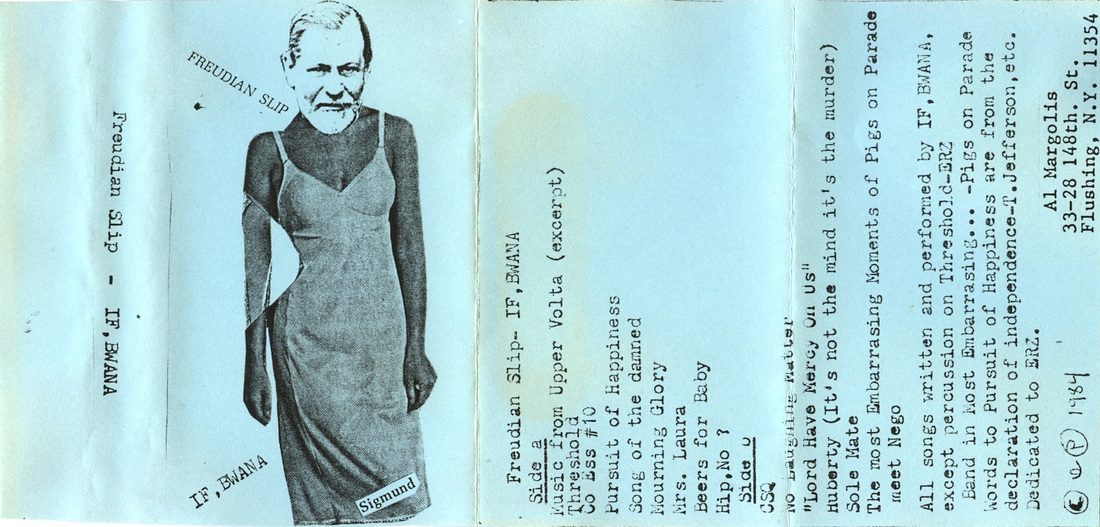 Freudian Slip - IF, BWANA
FREUDIAN SLIP
IF, BWANA
Sigmund
Freudian Slip- IF, BWANA
Side a
Music from Upper Volta (excerpt)
Threshold
Co Ess #10
Pursuit of Happiness
Song of the damned
Mourning Glory
Mrs. Laura
Beers for Baby
Hip,No ?
Side
CSQ
No Laughing Matter
"Lord Have Mercy On Us"
Huberty (It's not the mind it's the murder)
Sole Mate
The most Embarrasing Moments of Pigs on Parade
meet Nego
All songs written and performed by IF,BWANA,
except percussion on Threshold-ERZ
Band in Most Embarrasing... -Pigs on Parade
Words to Pursuit of Happiness are from the
declaration of independence-T.Jefferson,etc.
Dedicated to ERZ.
Al Margolis
33-28 148th. St.
Flushing, N.Y. 11354
1984